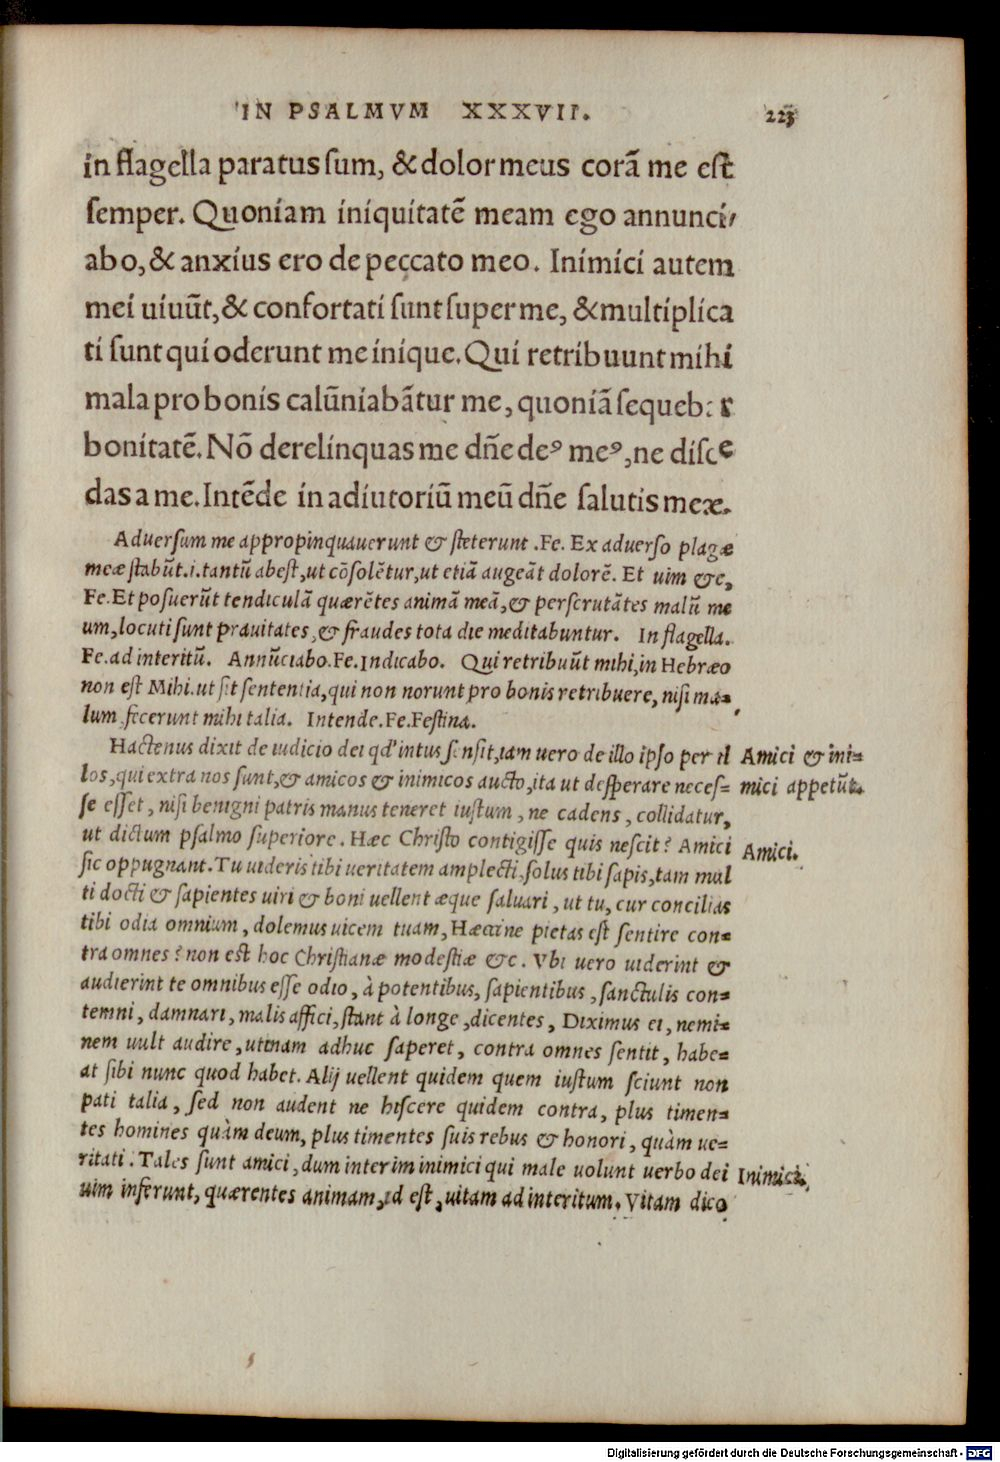 IN PSALMVM XXXVII. 223
in flagella paratus sum, & dolor meus corã me est
semper. Quoniam iniquitatẽ meam ego annunci⸗
abo, & anxius ero de peccato meo. Inimici autem
mei uiuũt, & confortati sunt super me, & multiplica
ti sunt qui oderunt me inique. Qui retribuunt mihi
mala pro bonis calũniabãtur me, quoniã sequebar
bonitatẽ. Nõ derelinquas me dñe deꝰ meꝰ, ne disce
das a me. Intẽde in adiutoriũ meũ dñe salutis meæ.
Aduersum me appropinquauerunt & steterunt .Fe. Ex aduerso plagæ
meæ stabũt.i.tantũ abest, ut cõsolẽtur, ut etiã augeãt dolorẽ. Et uim &c,
Fe. Et posuerũt tendiculã quærẽtes animã meã, & perscrutãtes malũ me
um, locuti sunt prauitates, & fraudes tota die meditabuntur. In flagella.
Fe. ad interitũ. Annũciabo. Fe. Indicabo. Qui retribuũt mihi, in Hebræo
non est Mihi. ut sit sententia, qui non norunt pro bonis retribuere, nisi ma⸗
lum, fecerunt mihi talia. Intende. Fe. Festina.
Hactenus dixit de iudicio dei qd' intus sensit, iam uero de illo ipso per il
Amici & ini⸗
los, qui extra nos sunt, & amicos & inimicos aucto, ita ut desperare neces⸗
mici appetũt.
se esset, nisi benigni patris manus teneret iustum, ne cadens, collidatur,
ut dictum psalmo superiore. Hæc Christo contigisse quis nescit? Amici
Amici.
sic oppugnant. Tu uideris tibi ueritatem amplecti, solus tibi sapis, tam mul
ti docti & sapientes uiri & boni uellent æque saluari, ut tu, cur concilias
tibi odia omnium, dolemus uicem tuam, Hæccine pietas est sentire con⸗
tra omnes? non est hoc Christianæ modestiæ &c. Vbi uero uiderint &
audierint te omnibus esse odio, à potentibus, sapientibus, sanctulis con⸗
temni, damnari, malis affici, stant à longe, dicentes, Diximus ei, nemi⸗
nem uult audire, utinam adhuc saperet, contra omnes sentit, habe⸗
at sibi nunc quod habet. Alij uellent quidem quem iustum sciunt non
pati talia, sed non audent ne hiscere quidem contra, plus timen⸗
tes homines quàm deum, plus timentes suis rebus & honori, quàm ue⸗
ritati. Tales sunt amici, dum interim inimici qui male uolunt uerbo dei
Inimici.
uim inferunt, quærentes animam, id est, uitam ad interitum. Vitam dico
Digitalisierung gefördert durch die Deutsche Forschungsgemeinschaft - DFG